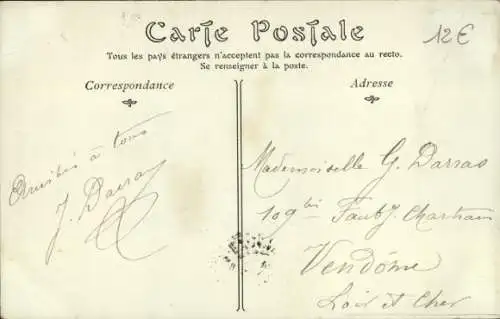 Carte Postale
12€
Tous les pays étrangers n'acceptent pas la correspondance au recto.
Se renseigner à la poste.
Correspondance
Adresse
Amitiés à tous
J. Darras
Mademoiselle G. Darras
109 bis Faubg Chartrain
Vendôme
Loir et Cher